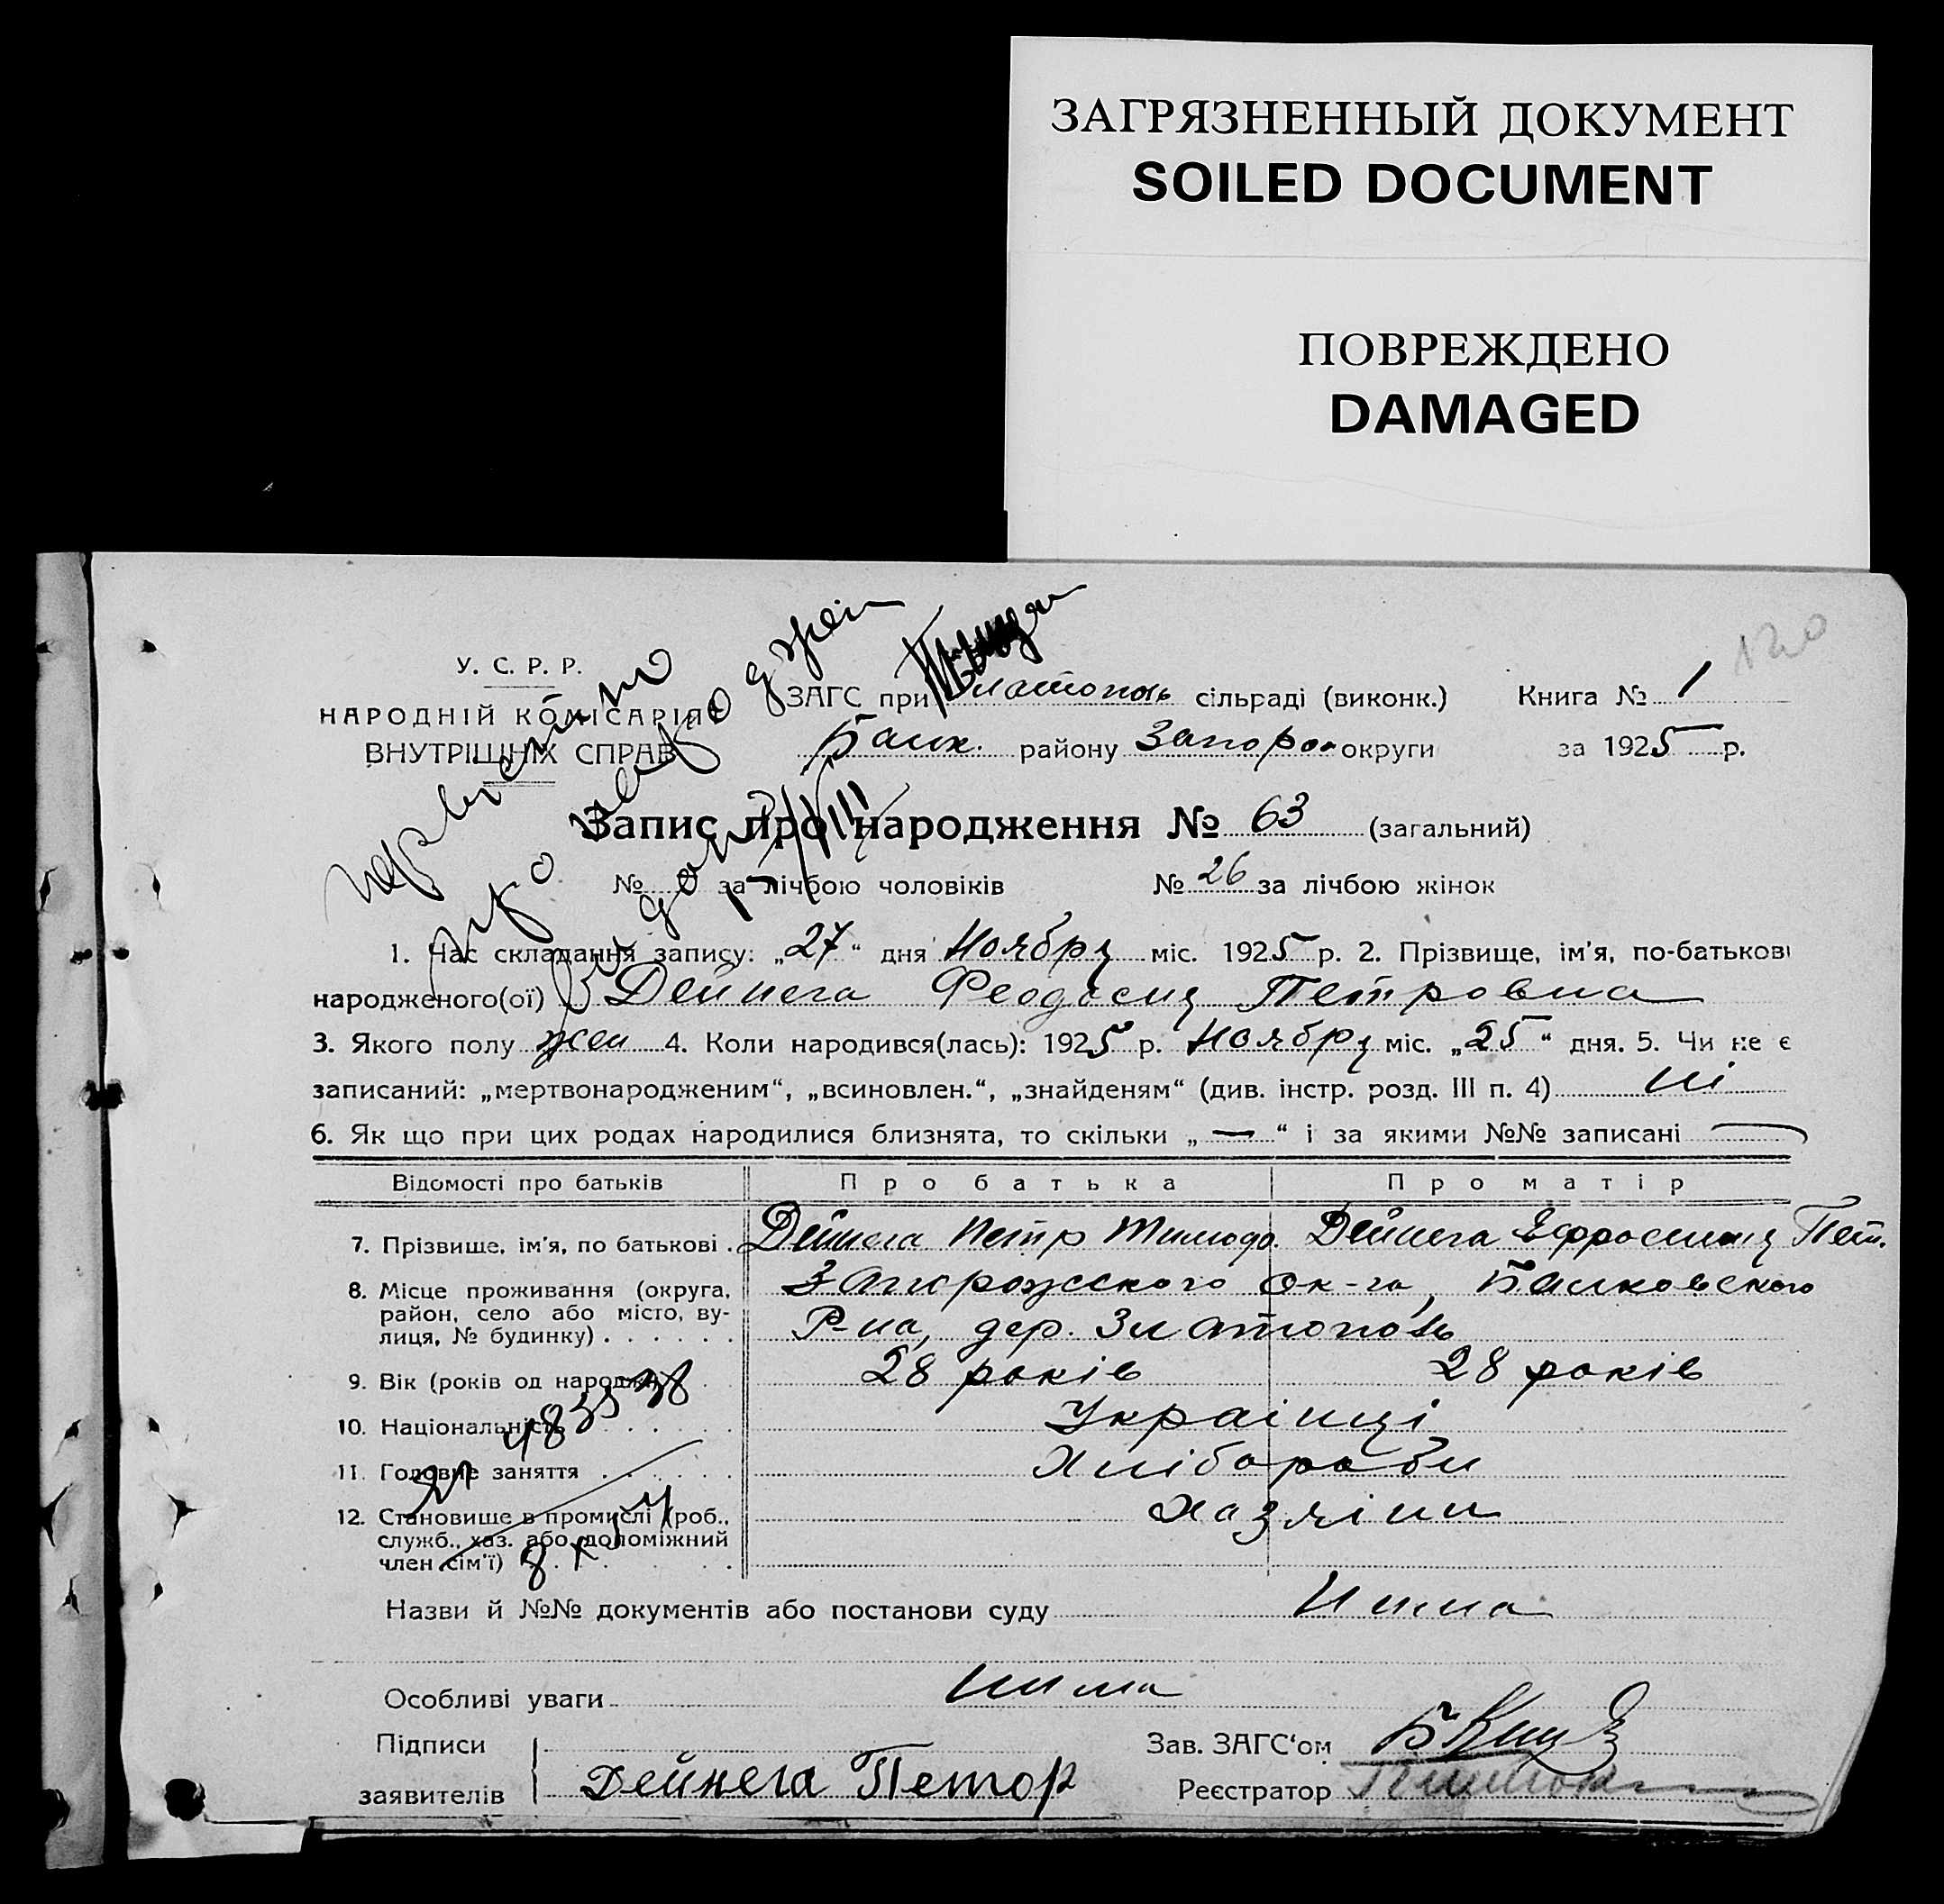 ЗАГРЯЗНЕННЫЙ ДОКУМЕНТ
SOILED DOCUMENT
ПОВРЕЖДЕНО
DAMAGED
120
У. С. Р. Р.
НАРОДНІЙ КОМІСАРІЯТ
ВНУТРІШНІХ СПРАВ
ЗАГС при Златополь сільраді (виконк.) Книга № 1
району Запорож округи за 1925 р.
Запис про народження № 63 (загальний)
№ за лічбою чоловіків № 26 за лічбою жінок
1. Час складання запису: „27“ дня Ноября міс. 1925 р. 2. Прізвище, ім'я, по-батькові
народженого(ої) Дейнега Феодосия Петровна
3. Якого полу жен 4. Коли народився(лась): 1925 р. Ноября міс. „25“ дня. 5. Чи не є
записаний: „мертвонародженим“, „всиновлен.“, „знайденям“ (див. інстр. розд. III п. 4) ні
6. Як що при цих родах народилися близнята, то скільки „—“ і за якими №№ записані —
Відомості про батьків Про батька Про матір
7. Прізвище, ім'я, по батькові . Дейнега Петр Тимофе. Дейнега Ефросиния Пет.
8. Місце проживання (округа, Запорожского ок-га, Балковского
район, село або місто, ву- Р-на, дер. Златополь
лиця, № будинку) . . . . . .
9. Вік (років од народж.) 28 років 28 років
10. Національність . . . . . . Українці
11. Головне заняття . . . . . . Хлібороби
12. Становище в промислі (роб., Хазяіни
служб., хаз. або допоміжний
член сім'ї)
Назви й №№ документів або постанови суду Нима
Особливі уваги нима
Підписи Зав. ЗАГС'ом
заявителів Дейнега Петор Реєстратор